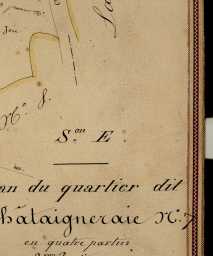 N.º 8.
S.on E.
an du quartier dit
hâtaigneraie N.º 7
en quatre parties